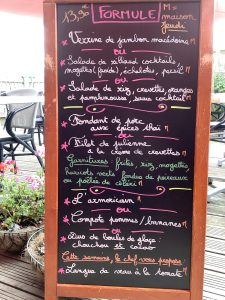 13,90€ FORMULE M= maison
jeudi
* Verrine de jambon macédoine M
ou
* Salade de surimi cocktails,
mogettes (froid), échalotes, persil M
ou
* Salade de riz, crevettes oranges
et pamplemousse, sauce cocktail M
* Fondant de porc
aux épices thaï M
ou
* Filet de julienne
à la crème de crevettes M
Garnitures: frites, riz, mogettes
haricots verts fondue de poireaux
poêlée de céleri M
* L'armoricain M
ou
* Compote pommes/bananes M
ou
* Duo de boules de glace:
chouchou et cacao
Cette semaine, le chef vous propose
* Langue de veau à la tomate M